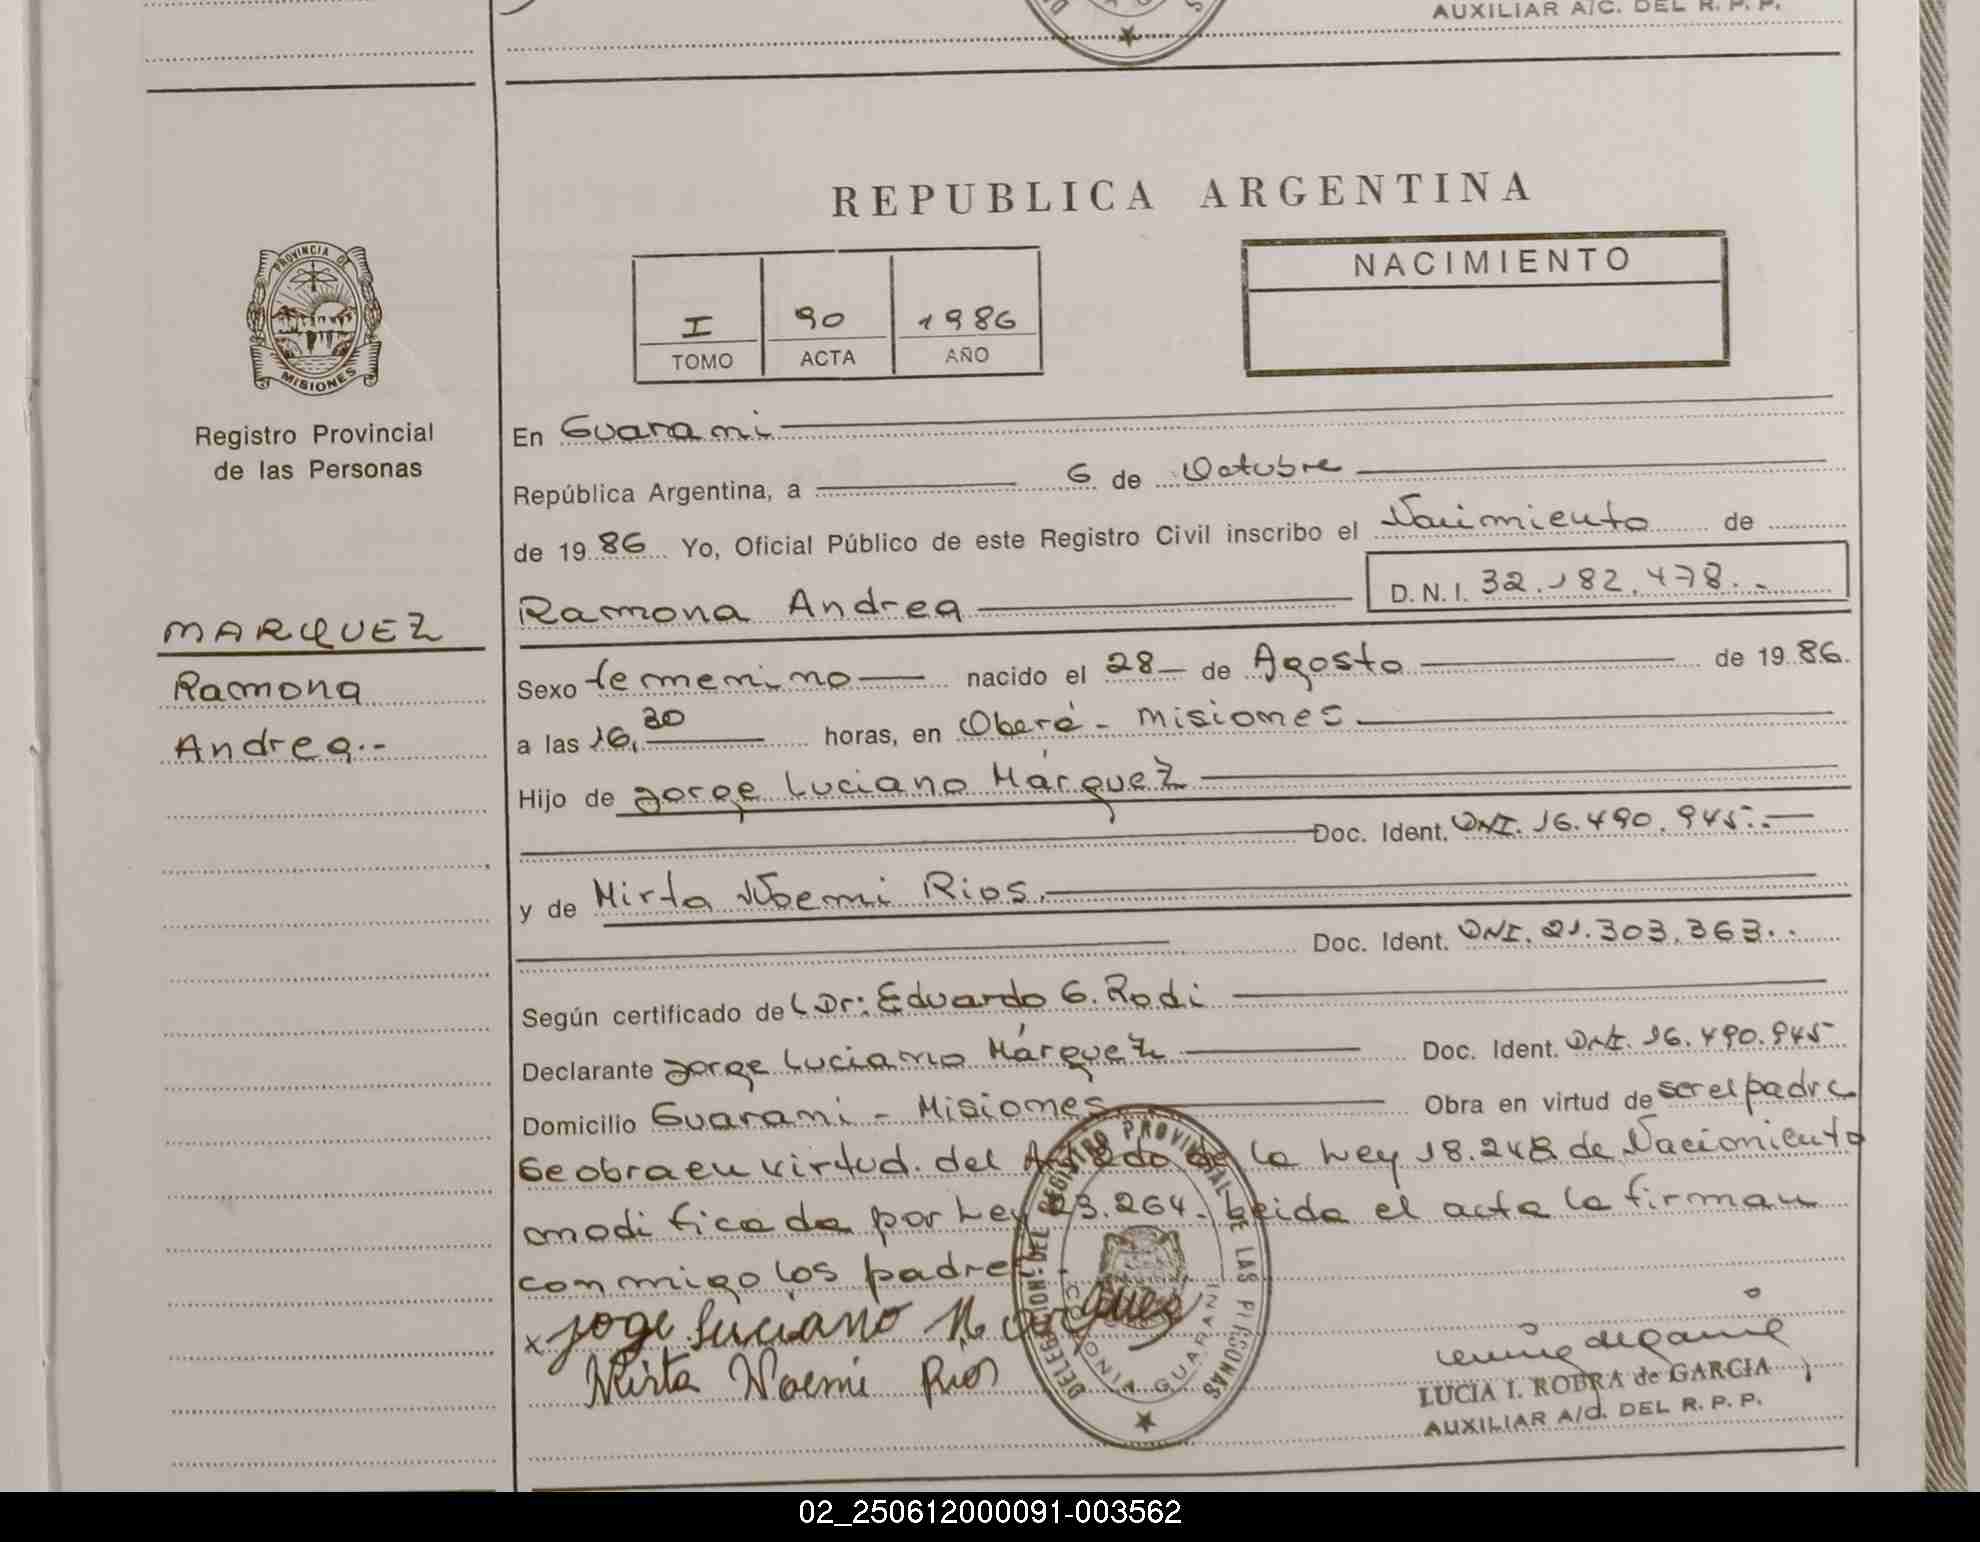 AUXILIAR A/C. DEL R. P. P.
REPUBLICA ARGENTINA
PROVINCIA DE
MISIONES
Registro Provincial
de las Personas
I 90 1986
TOMO ACTA AÑO
NACIMIENTO
En Guarani
República Argentina, a 6 de Octubre
de 19 86 Yo, Oficial Público de este Registro Civil inscribo el Nacimiento de
Ramona Andrea D.N.I. 32.182.478.-
MARQUEZ
Ramona
Andrea.-
Sexo femenino nacido el 28 de Agosto de 19 86.
a las 16,30 horas, en Oberá - Misiones
Hijo de Jorge Luciano Márquez
Doc. Ident. DNI. 16.490.945.-
y de Mirta Noemi Rios.
Doc. Ident. DNI. 21.303.363..
Según certificado de Dr: Eduardo G. Rodi
Declarante Jorge Luciano Márquez Doc. Ident. DNI. 16.490.945
Domicilio Guarani - Misiones Obra en virtud de ser el padre
Se obra en virtud. del de la Ley 18.248 de Nacimiento
modificada por Ley 23.264. Leida el acta la firman
conmigo los padres.
x Joge Luciano Marquez
Mirta Noemi Rios
DELEGACION: DEL REGISTRO PROVINCIAL DE LAS PERSONAS
COLONIA GUARANI
LUCIA I. ROBRA de GARCIA
AUXILIAR A/d. DEL R. P. P.
02_250612000091-003562